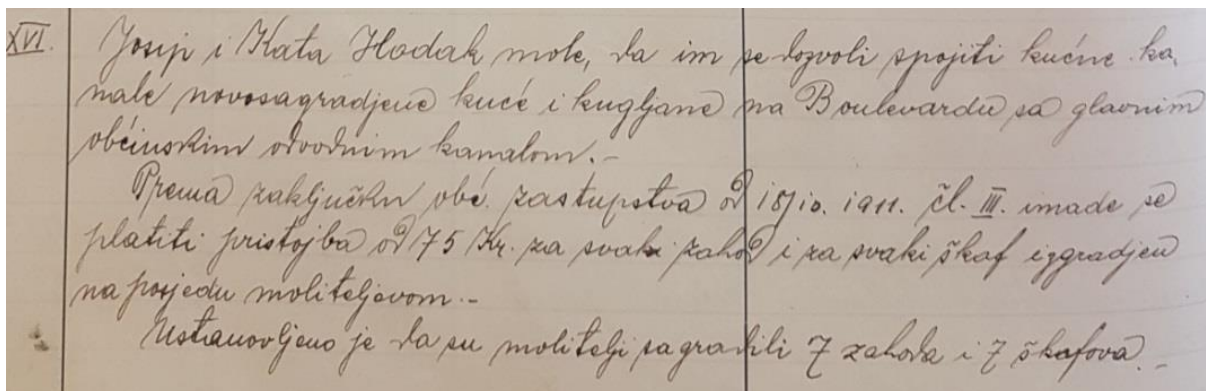 XVI. Josip i Kata Hodak mole, da im se dozvoli spojiti kućne ka-
nale novosagradjene kuće i kugljane na Boulevardu sa glavnim
občinskim odvodnim kanalom.-
Prema zaključku obć. zastupstva od 18/10. 1911. čl. III. imade se
platiti pristojba od 75 Kr. za svaki zahod i za svaki škaf izgradjen
na posjedu moliteljevom.-
Ustanovljeno je da su molitelji sagradili 7 zahoda i 7 škafova.-